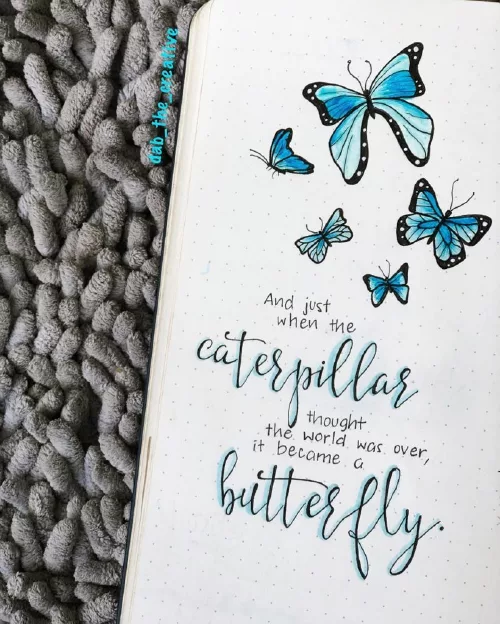 dab_the_creative
And just
when the
caterpillar
thought
the world was over,
it became a
butterfly.